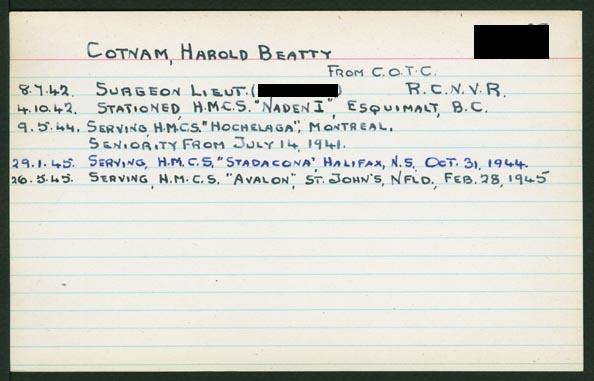 COTNAM, HAROLD BEATTY
FROM C.O.T.C.
8.7.42. SURGEON LIEUT. ( ) R.C.N.V.R.
4.10.42. STATIONED, H.M.C.S. "NADEN I", ESQUIMALT, B.C.
9.5.44. SERVING, H.M.C.S. "HOCHELAGA", MONTREAL.
SENIORITY FROM JULY 14, 1941.
29.1.45. SERVING, H.M.C.S. "STADACONA", HALIFAX, N.S. OCT. 31, 1944.
26.5.45. SERVING, H.M.C.S. "AVALON", ST. JOHN'S, NFLD., FEB. 28, 1945